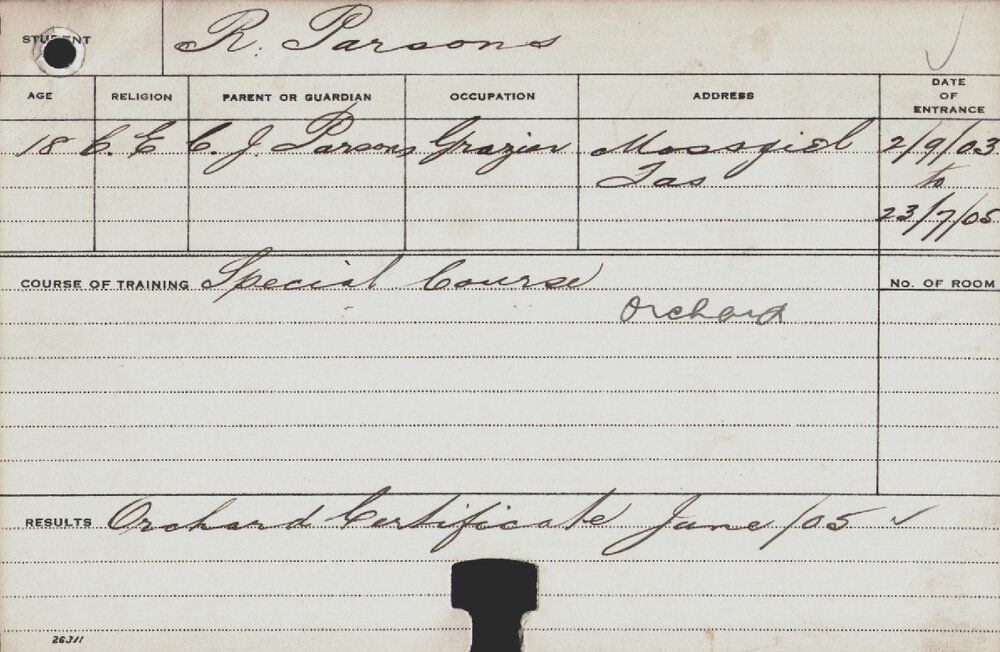 STUDENT R. Parsons
AGE RELIGION PARENT OR GUARDIAN OCCUPATION ADDRESS DATE OF ENTRANCE
18 C. E C. J. Parsons Grazier Mossgiel 2/9/03
Tas to
23/7/05
COURSE OF TRAINING Special Course No. OF ROOM
Orchard
RESULTS Orchard Certificate June /05 ✓
26311